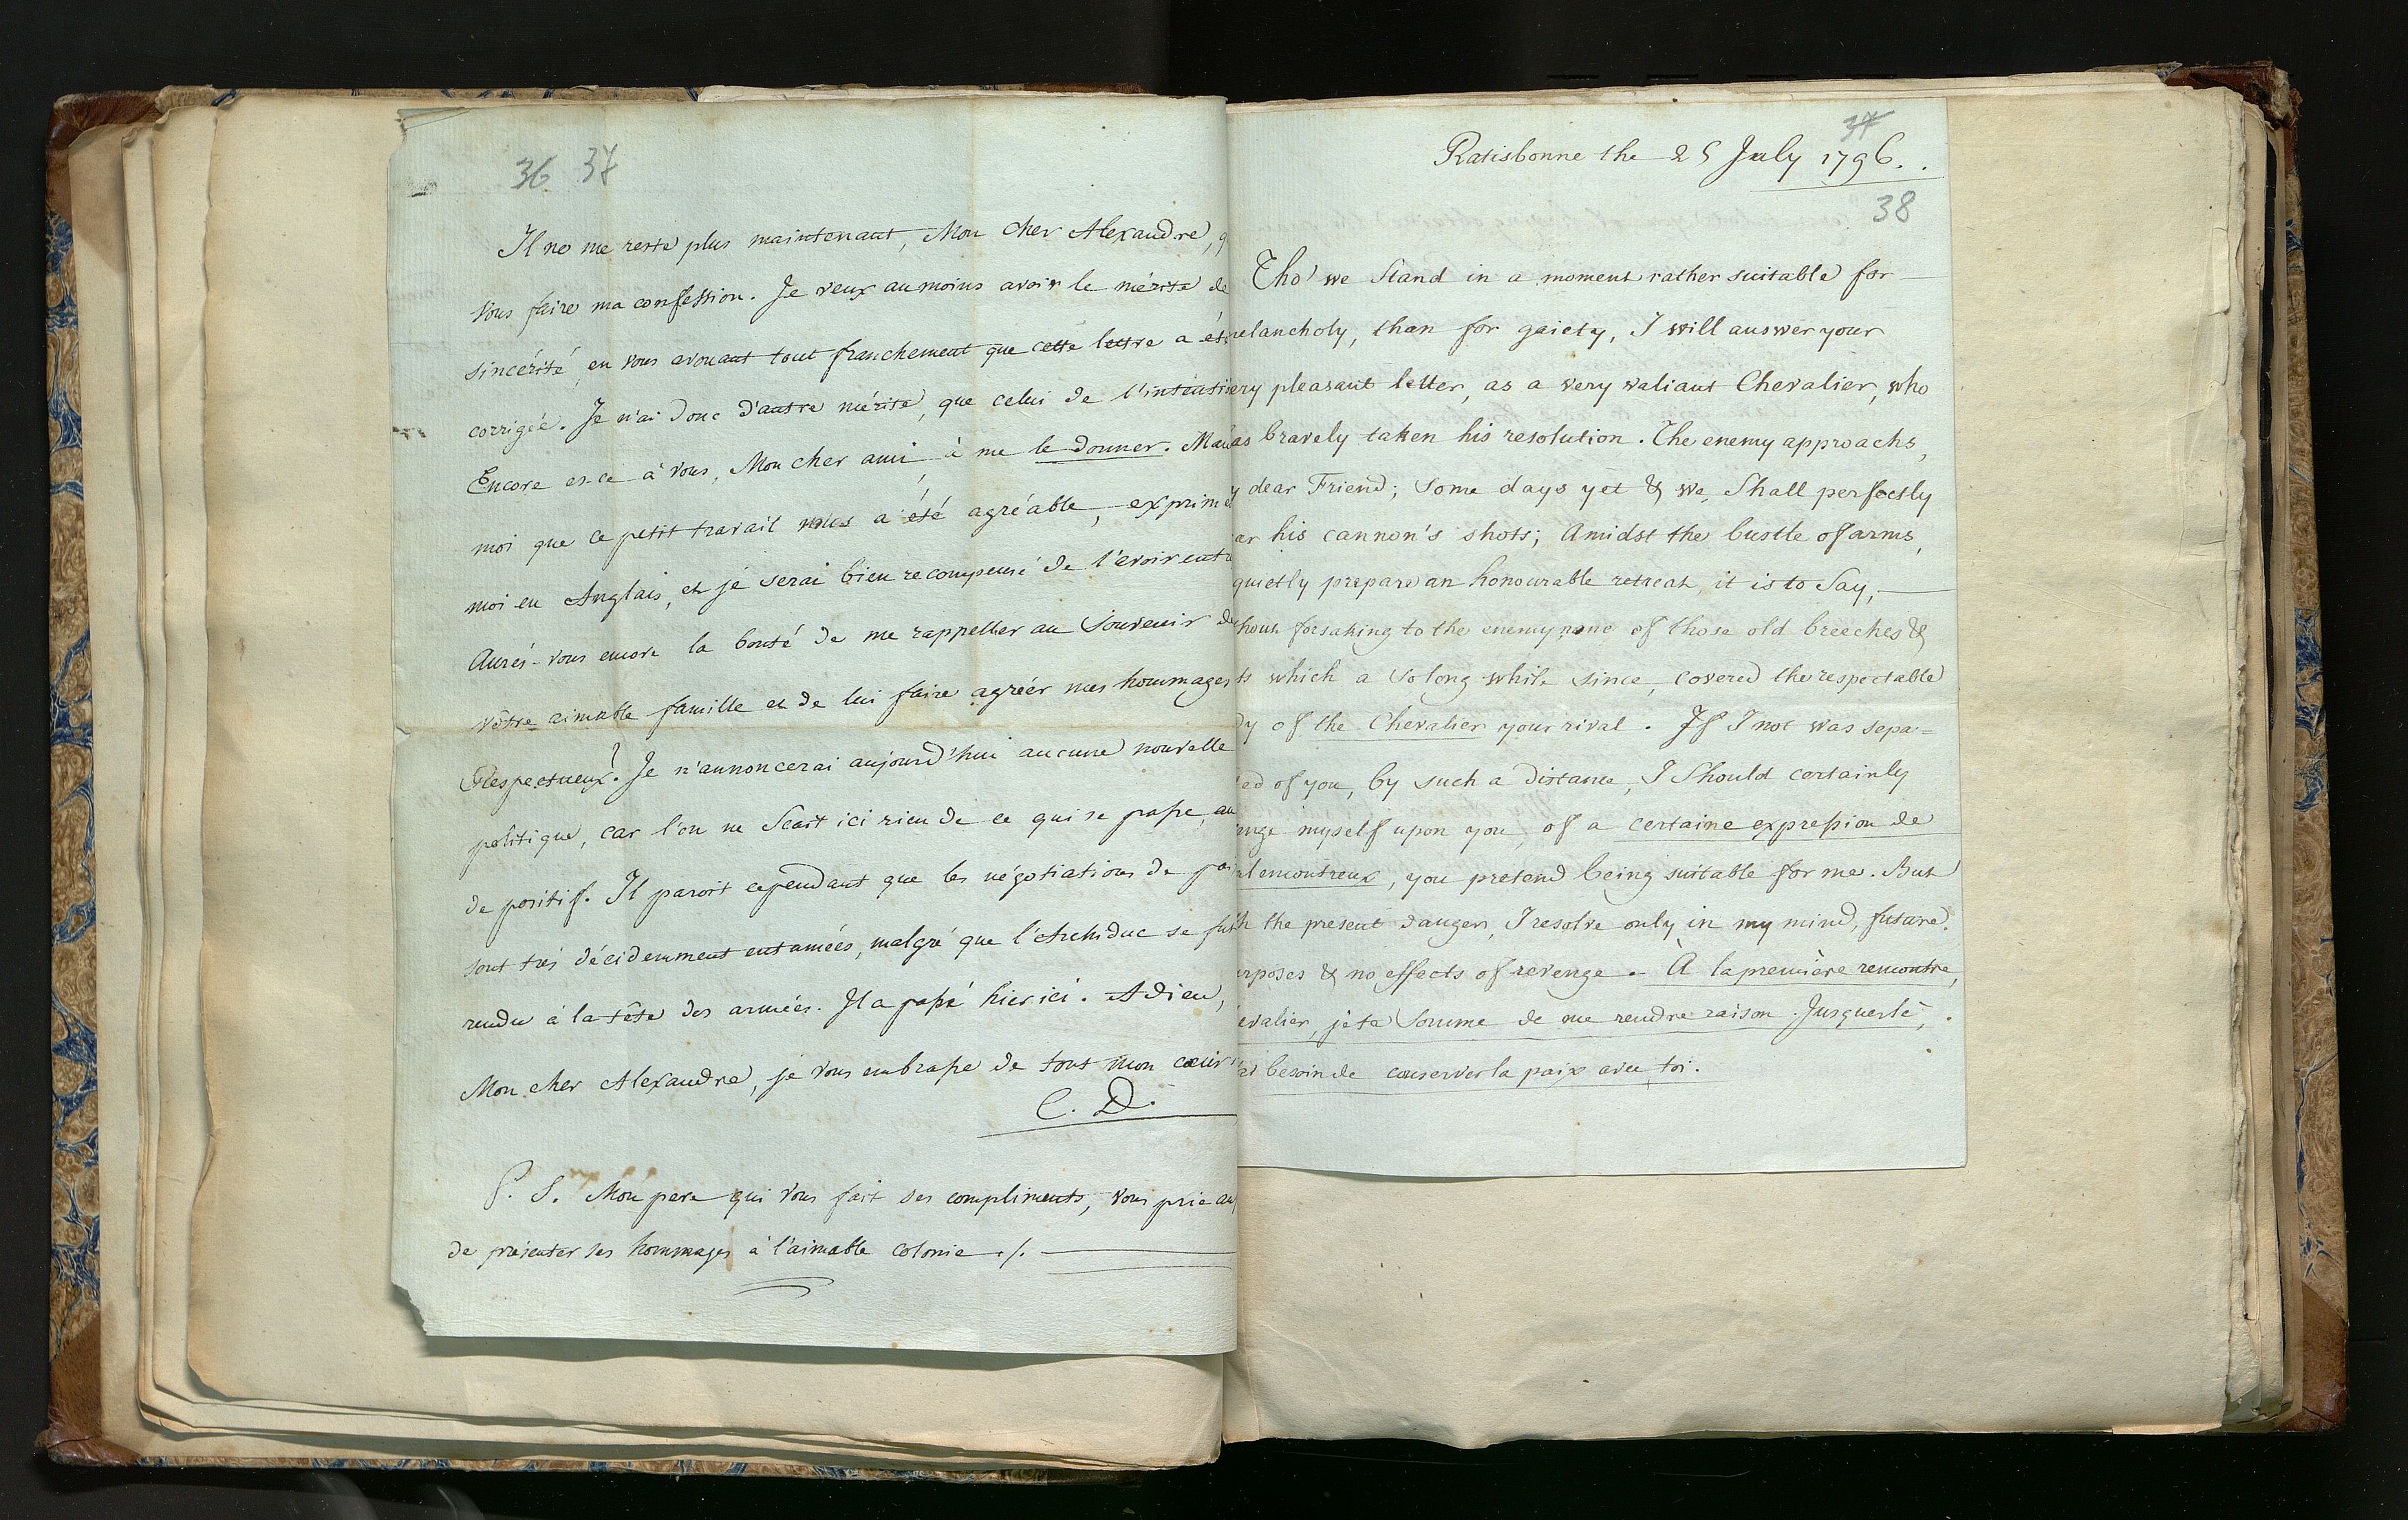 36 37
Il ne me reste plus maintenant, Mon cher Alexandre, q
vous faire ma confession. Je veux au moins avoir le mérite de
sincérité, en vous avouant tout franchement que cette lettre a ét
corrigée. Je n'ai donc d'autre mérite, que celui de l'intenti
Encore es-ce à vous, Mon cher ami, à me le donner. Ma
moi que ce petit travail vous a été agréable, exprime
moi en Anglais, et je serai bien recompensé de l'avoir ent
Aurés-vous encore la bonté de me rappeller au Souvenir de
vôtre aimable famille et de lui faire agréer mes hommages
Respectueux? Je n'annoncerai aujourd'hui aucune nouvelle
politique, car l'on ne Scait ici rien de ce qui se passe, au
de positif. Il paroit cependant que les négotiations de pai
sont trés décidemment entamées, malgré que l'Archiduc se fut
rendu à la tête des armées. Il a passé hier ici. Adieu,
Mon cher Alexandre, je vous embrasse de tout mon cœur
C. D.
P. S. Mon pere qui vous fait ses compliments, vous prie au
de présenter ses hommages à l'aimable colonie ./.
37
Ratisbonne the 25 July 1796.
38
Tho' we Stand in a moment rather suitable for
melancholy, than for gaiety, I will answer your
ery pleasant letter, as a very valiant Chevalier, who
as bravely taken his resolution. The enemy approachs,
y dear Friend; Some days yet & we Shall perfectly
ar his cannon's shots; Amidst the bustle of arms,
quietly prepare an honourable retreat, it is to Say,
hout forsaking to the enemy none of those old breeches &
ts which a so long while since, covered the respectable
dy of the Chevalier your rival. If I not was sepa=
ed of you, by such a distance, I Should certainly
enge myself upon you, of a certaine expression de
al encontreux, you pretend being suitable for me. But
h the present danger, I resolve only in my mind, future
urposes & no effects of revenge. - À la première rencontre,
evalier, je te somme de me rendre raison. Jusques là,
ai besoin de conserver la paix avec toi.